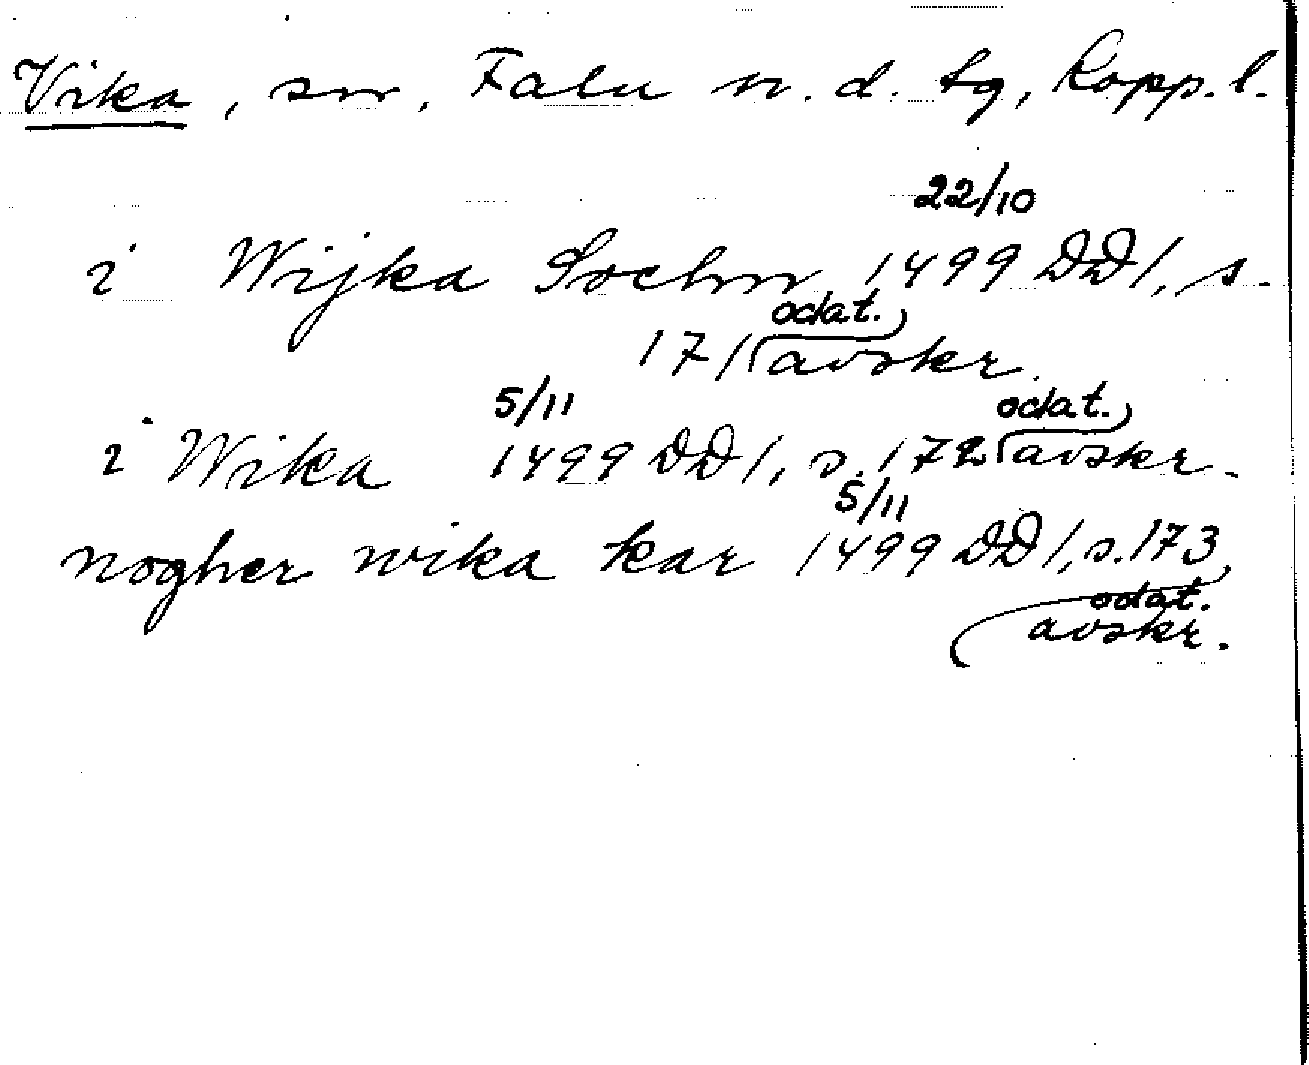 Vika, sn, Falu n. d. tg, Kopp. l.
22/10
i Wijka Sochn 1499 DD 1, s.
171 (odat. avskr.
5/11
i Wika 1499 DD 1, s. 172 (odat. avskr.
5/11
nogher wika kar 1499 DD 1, s. 173
(odat. avskr.